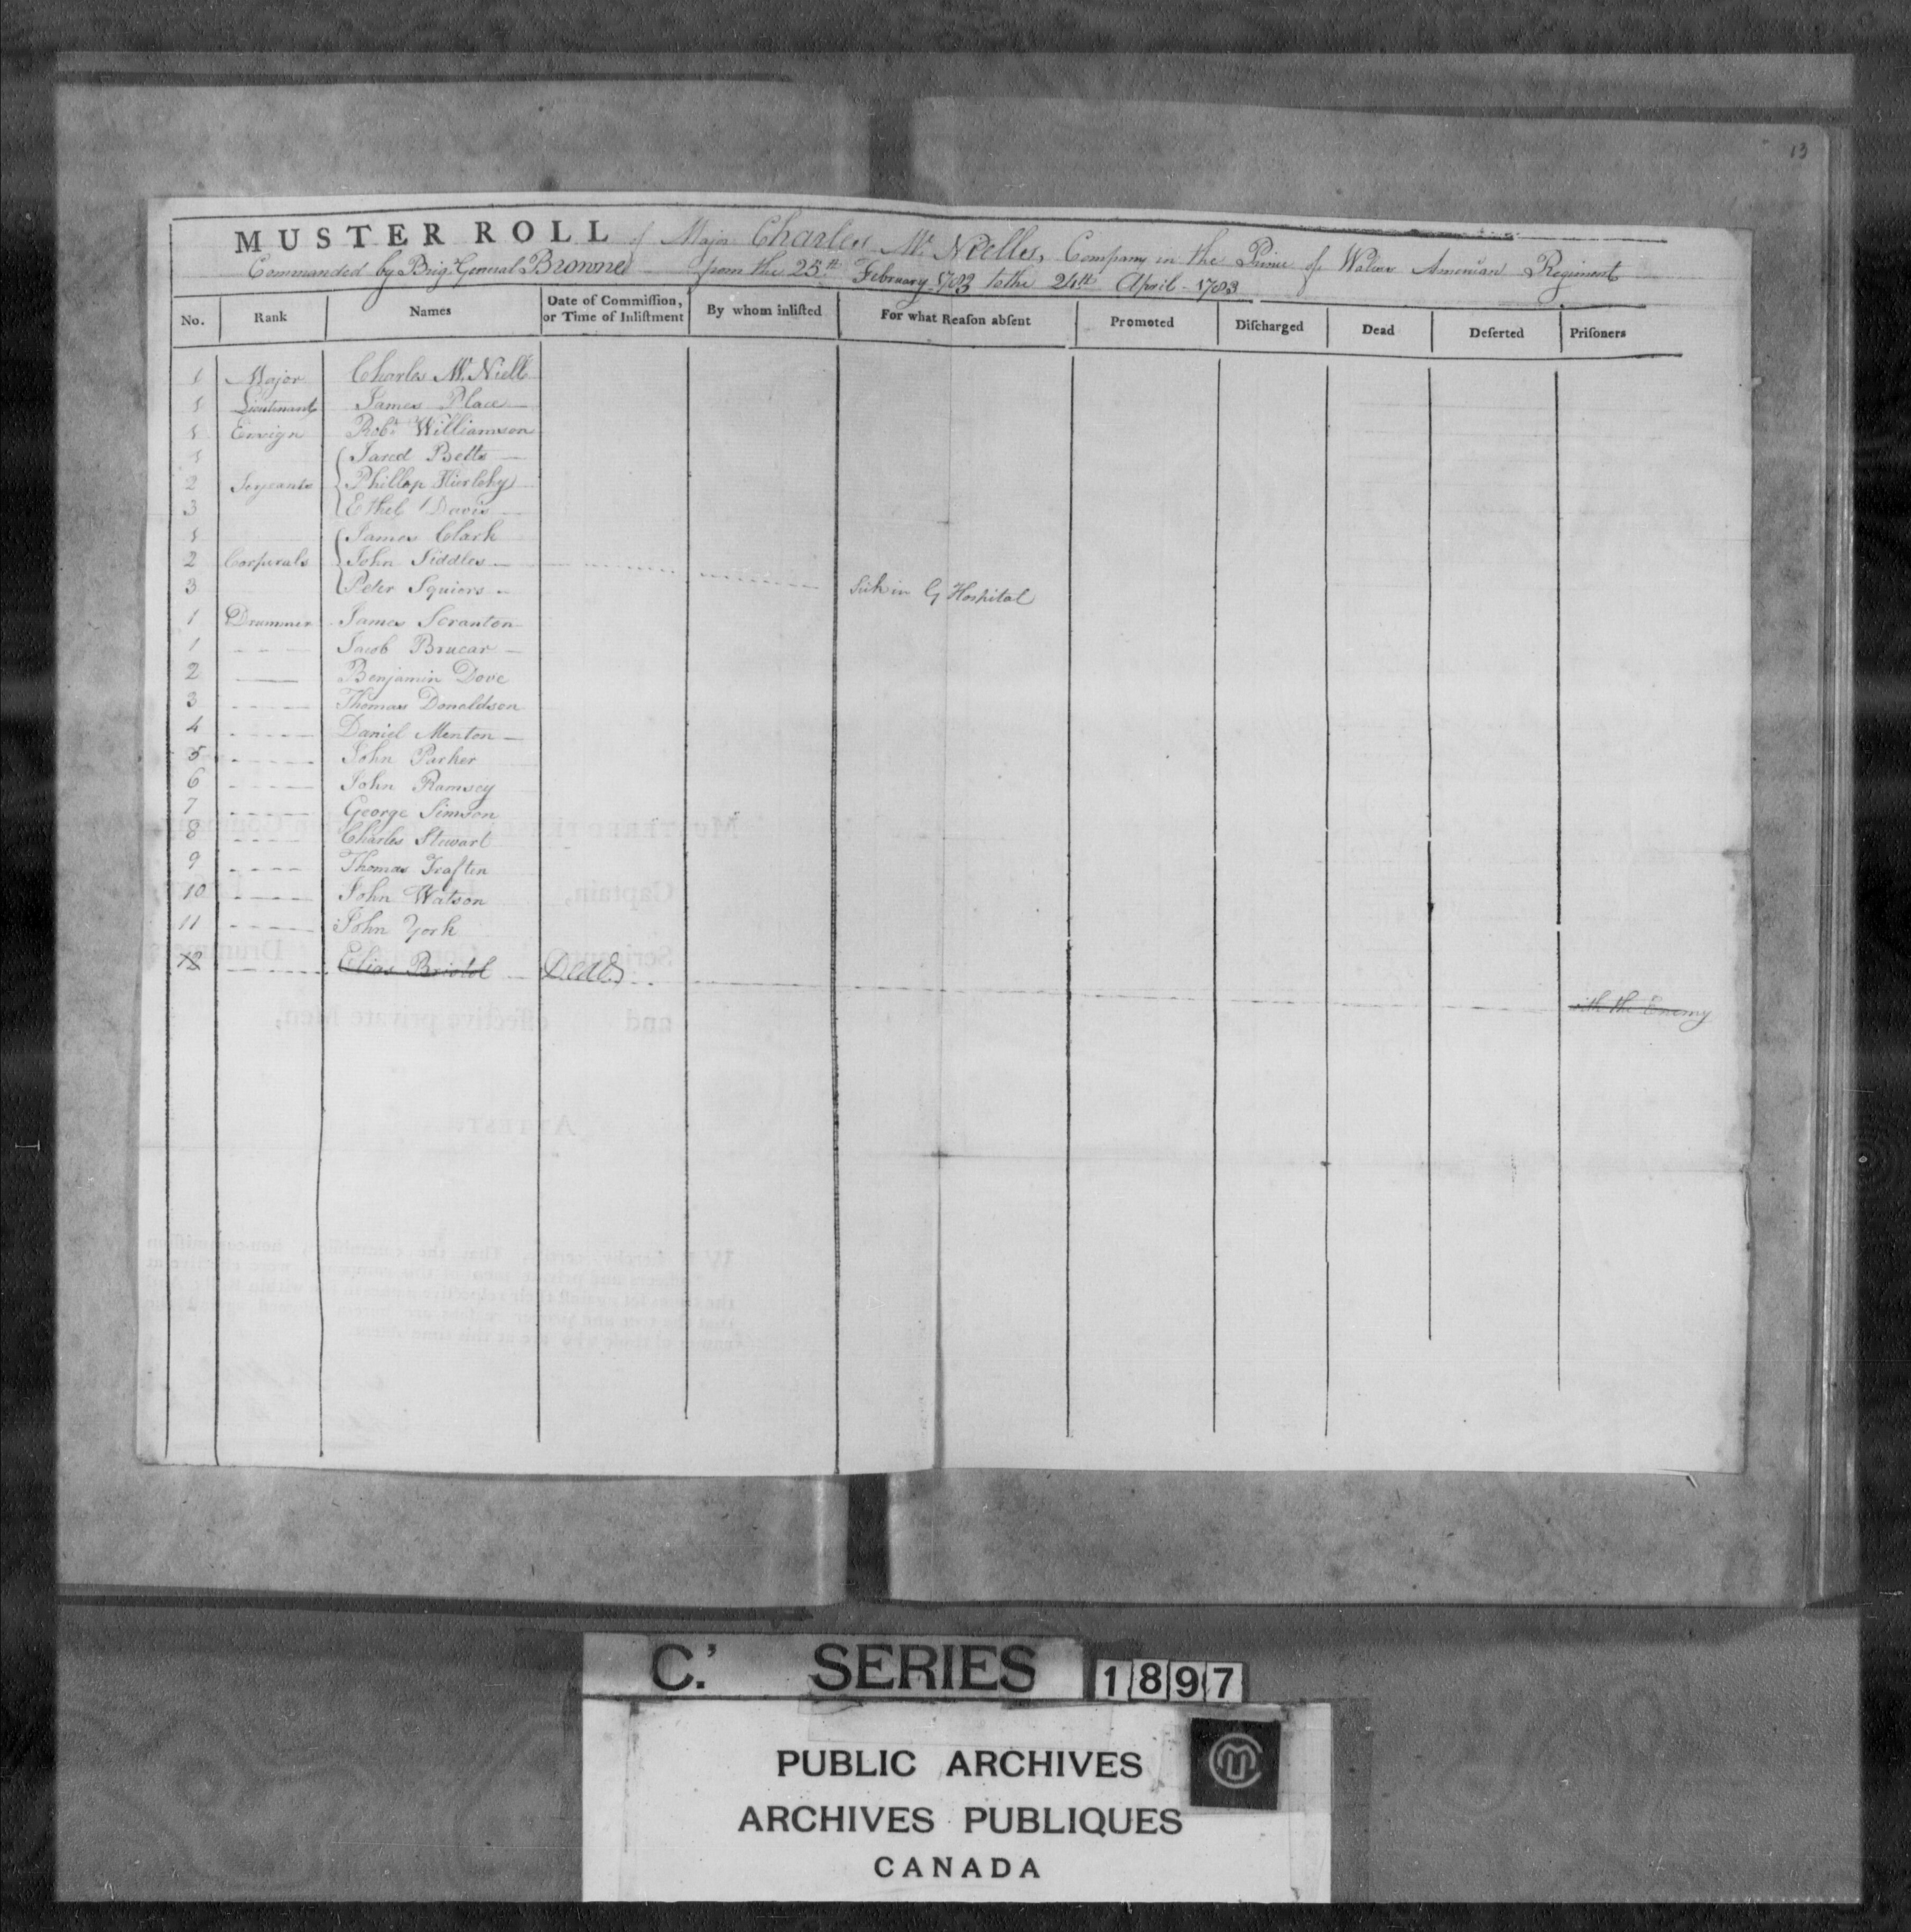 13
MUSTER ROLL of Major Charles Mc Nielles, Company in the Prince of Wales American Regiment
Commanded by Brig. General Browne from the 25th February 1783 to the 24th April - 1783
No. Rank Names Date of Commiſſion, or Time of Inliſtment By whom inliſted For what Reaſon abſent Promoted Diſcharged Dead Deſerted Priſoners
1 Major Charles Mc Niell
1 Lieutenant James Place
1 Ensign Robt Williamson
1 Jared Betts
2 Serjeants Phillop
3 Ethel Davis
1 James Clark
2 Corperals John Siddles
3 Peter Squiors Sick in G Hospital
1 Drummer James Scranton
1 Jacob Brucar
2 Benjamin Dove
3 Thomas Donaldson
4 Daniel Menton
5 John Parker
6 John Ramsey
7 George Simson
8 Charles Stewart
9 Thomas Traften
10 John Watson
11 John York
12 Elias Bristol Dead with the Enemy
C.' SERIES 1897
PUBLIC ARCHIVES
ARCHIVES PUBLIQUES
CANADA